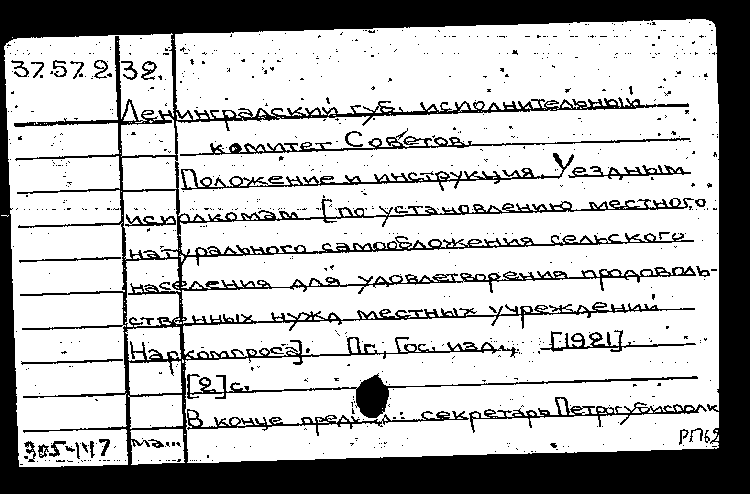 37.57.2. 32.
Ленинградский губ. исполнительный
комитет Советов.
Положение и инструкция Уездным
исполкомам [по установлению местного
натурального самообложения сельского
населения для удовлетворения продоволь-
ственных нужд местных учреждений
Наркомпроса]. Пг., Гос. изд., [1921].
[2] с.
В конце : секретарь Петрогубисполк
305-147 ма...